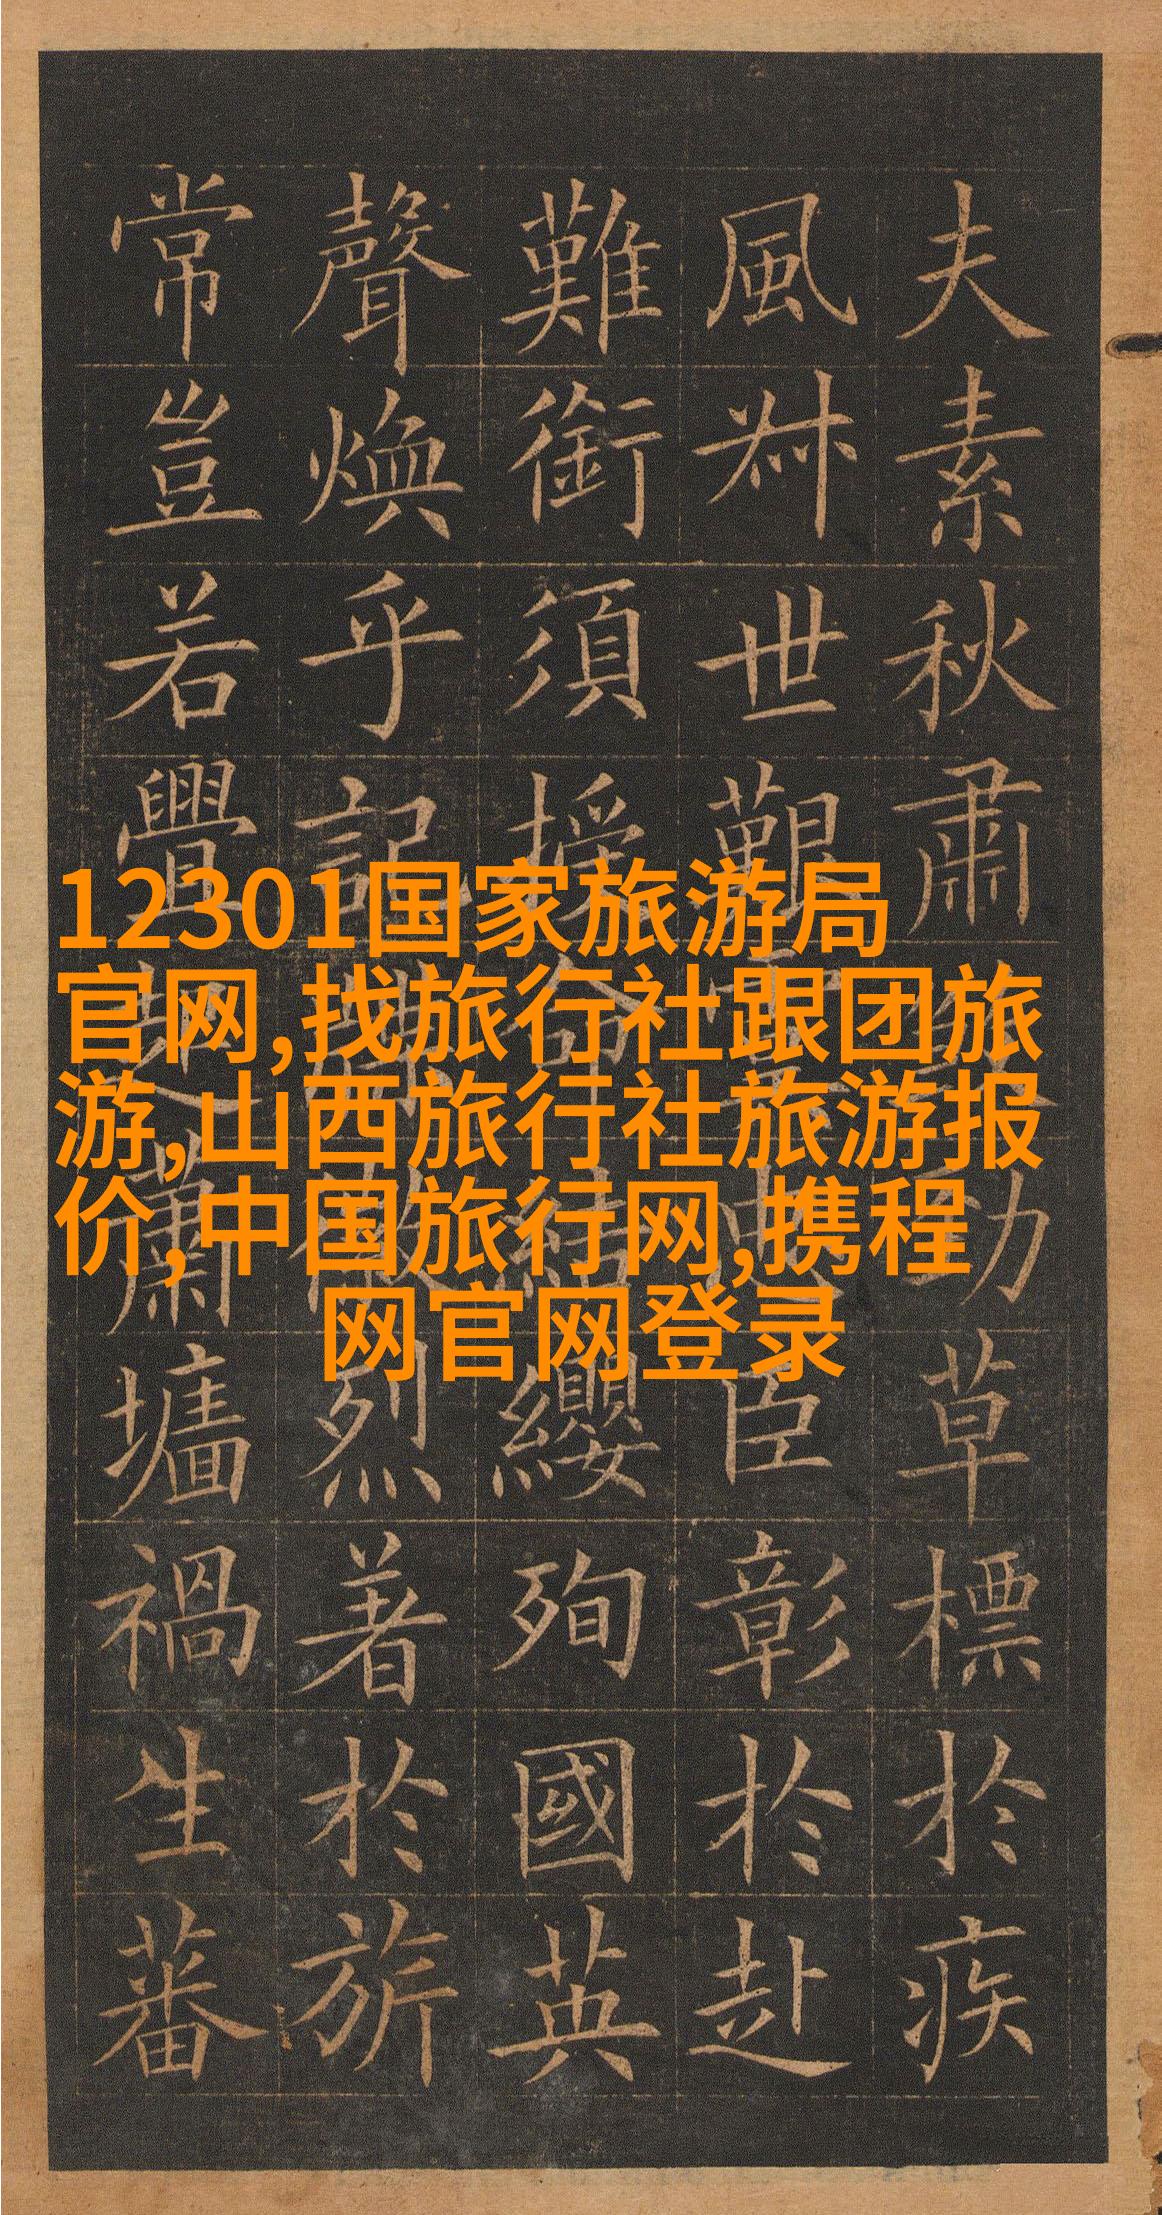 12301国家旅游局
官网,找旅行社跟团旅
游,山西旅行社旅游报
价,中国旅行网,携程
网官网登录
夫素秋肅勁草標於疾
風叔世艱忠臣彰於赴
難銜須授命結纓殉國英
聲煥乎記烈著於旂
常豈若舋起蕭墻禍生蕃